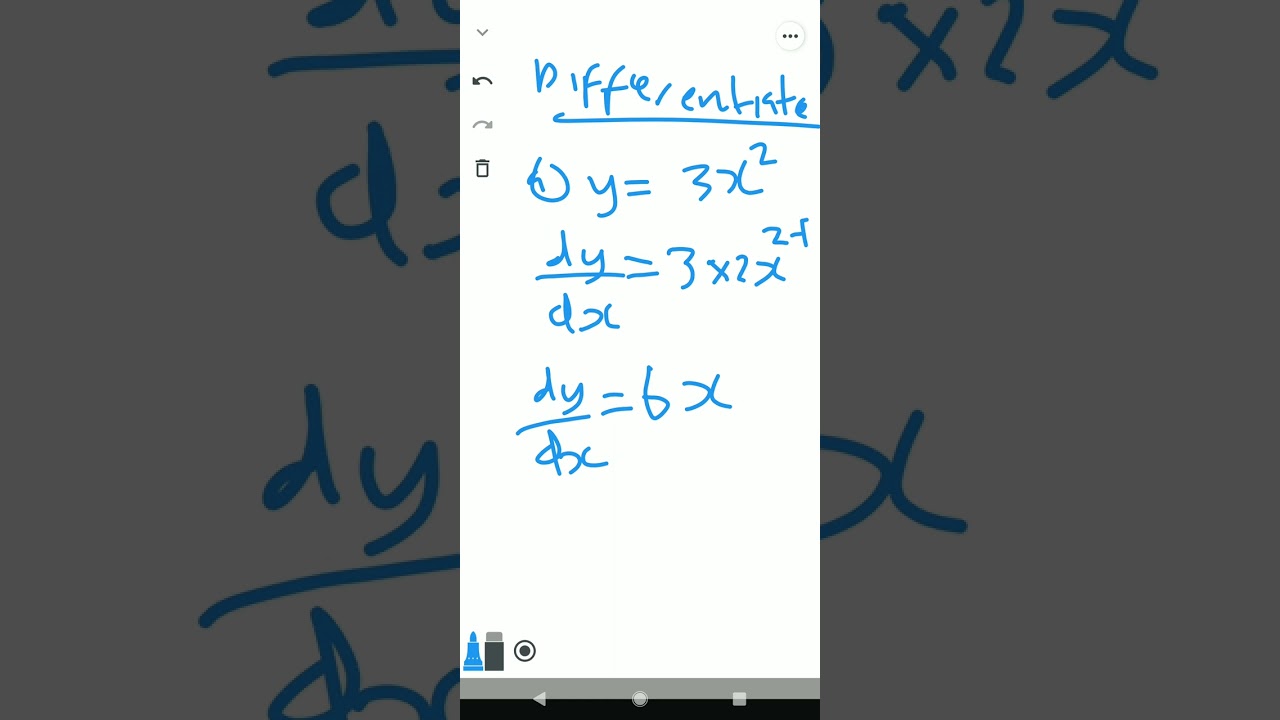 Differentiate
1) y = 3x²
dy/dx = 3×2x²⁻¹
dy/dx = 6x